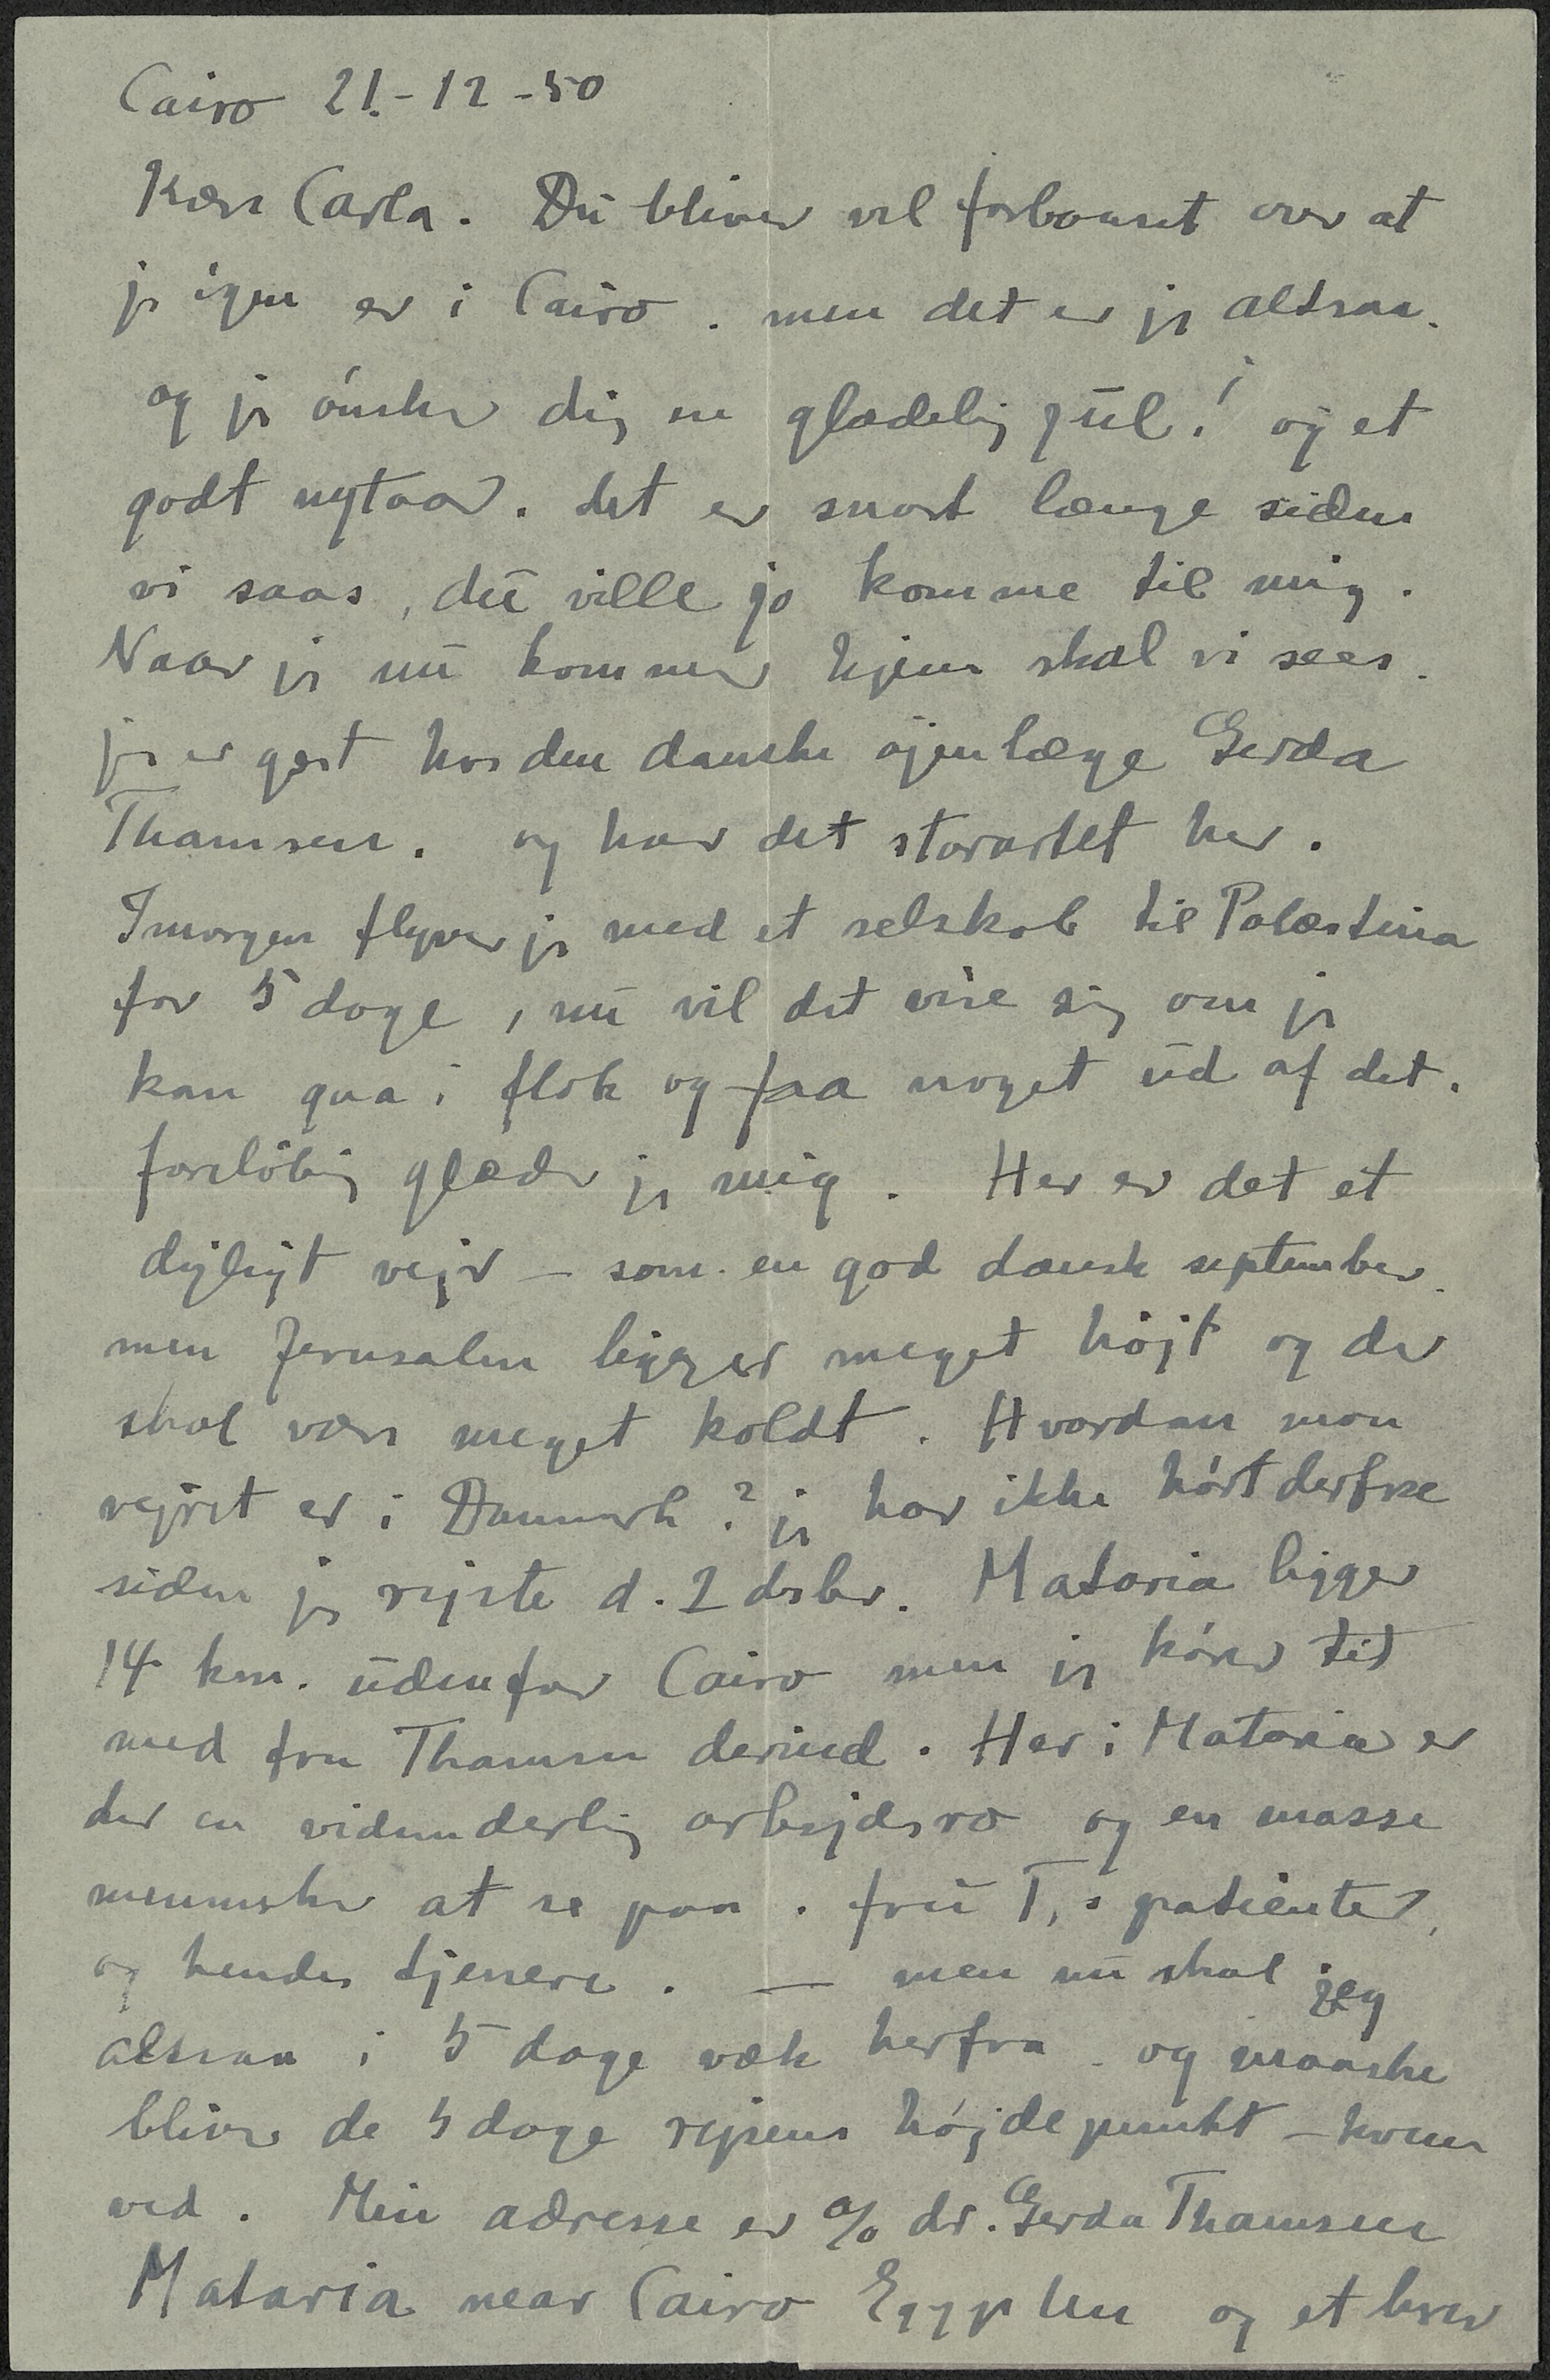 Cairo 21.-12-50
Kære Carla. Du bliver vel forbauset over at
jeg igen er i Cairo. men det er jeg altsaa.
og jeg ønsker dig en glædelig jul! og et
godt nytaar. det er snart længe siden
vi saas, du ville jo komme til mig.
Naar jeg nu kommer hjem skal vi sees.
jeg er gæst hos den danske øjenlæge Gerda
Thamsen. og har det storartet her.
Imorgen flyver jeg med et selskab til Palæstina
for 5 dage, nu vil det vise sig om jeg
kan gaa i flok og faa noget ud af det.
foreløbig glæder jeg mig. Her er det et
dejligt vejr – som en god dansk september.
men Jerusalem ligger meget højt og der
skal være meget koldt. Hvordan mon
vejret er i Danmark? jeg har ikke hørt derfra
siden jeg rejste d. 2 dcbr. Mataria ligger
14 km. udenfor Cairo men jeg kører tit
med fru Thamsen derind. Her i Mataria er
der en vidunderlig arbejdsro og en masse
mennesker at se paa. fru T,s patienter,
og hendes tjenere. – men nu skal jeg
altsaa i 5 dage væk herfra. og maaske
bliver de 5 dage rejsens højdepunkt – hvem
ved. Min adresse er c/o dr. Gerda Thamsen
Mataria near Cairo Egypten og et brev